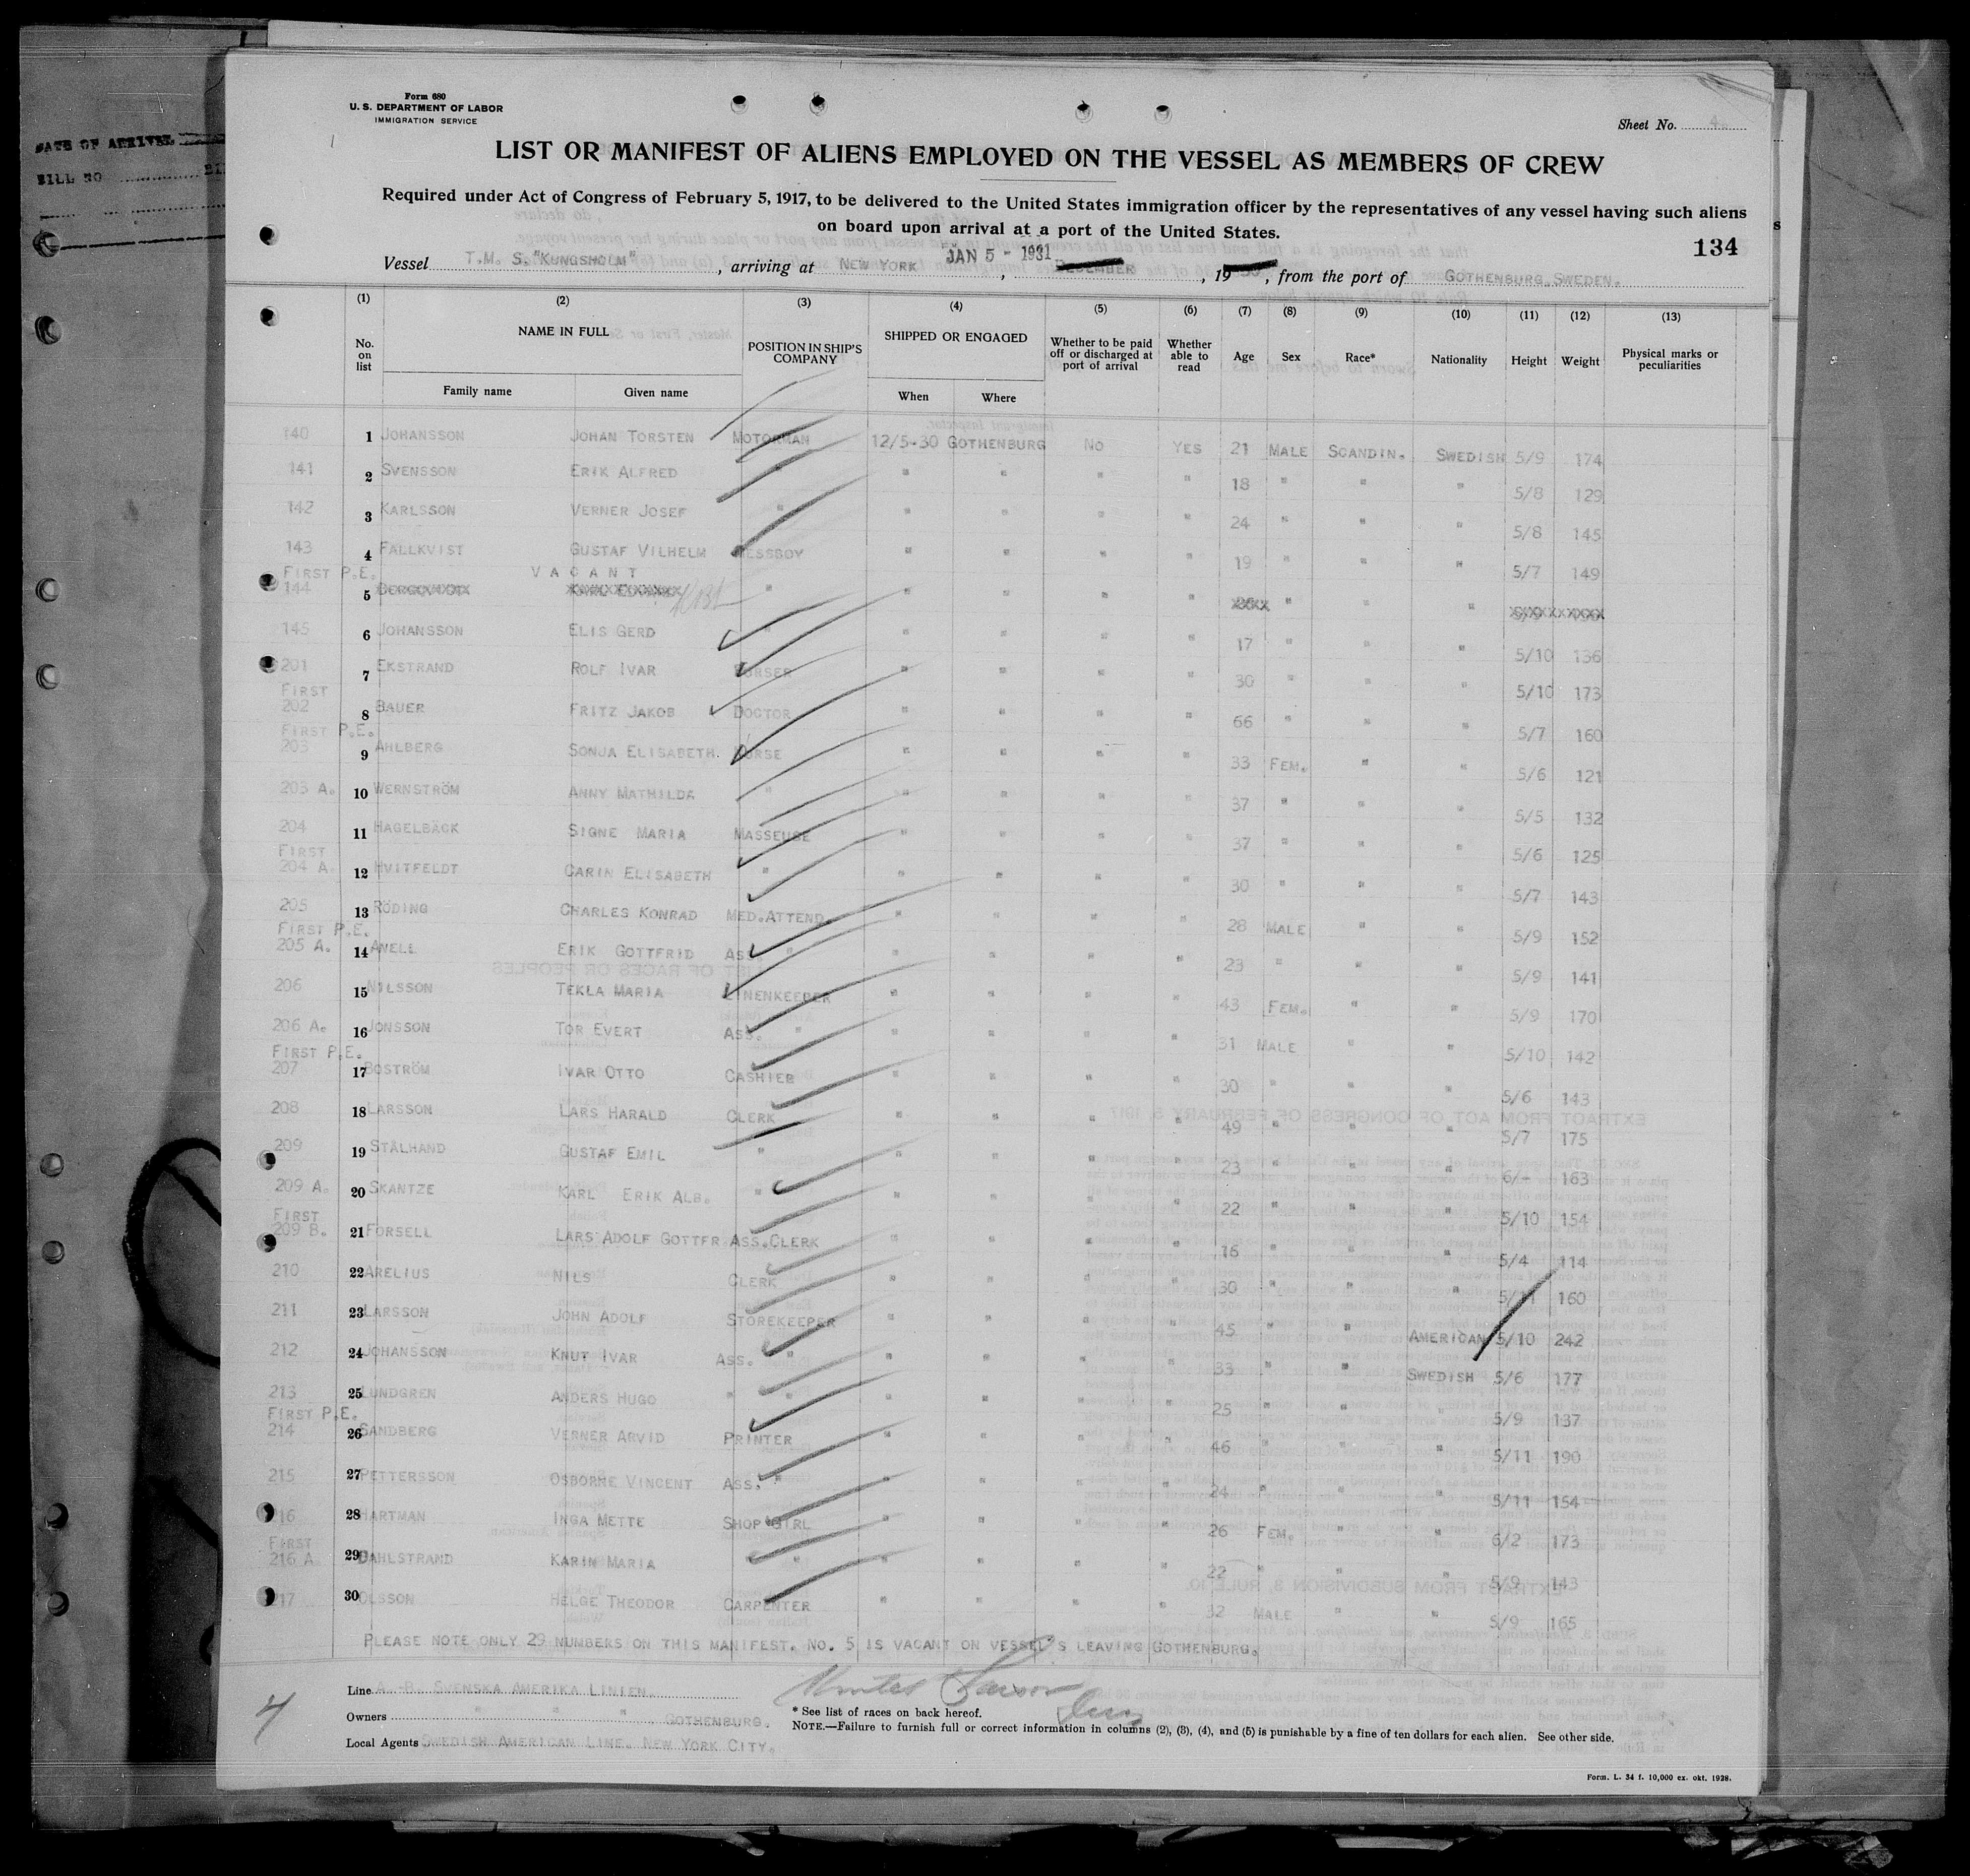 DATE OF ARRIVAL
BILL NO
Form 680
U. S. DEPARTMENT OF LABOR
IMMIGRATION SERVICE
Sheet No. 4.
LIST OR MANIFEST OF ALIENS EMPLOYED ON THE VESSEL AS MEMBERS OF CREW
Required under Act of Congress of February 5, 1917, to be delivered to the United States immigration officer by the representatives of any vessel having such aliens
on board upon arrival at a port of the United States.
134
Vessel T.M. S. "KUNGSHOLM", arriving at NEW YORK JAN 5 - 1931, DECEMBER, 1930, from the port of GOTHENBURG. SWEDEN.
(1) (2) (3) (4) (5) (6) (7) (8) (9) (10) (11) (12) (13)
No. on list NAME IN FULL Family name Given name POSITION IN SHIP'S COMPANY SHIPPED OR ENGAGED When Where Whether to be paid off or discharged at port of arrival Whether able to read Age Sex Race* Nationality Height Weight Physical marks or peculiarities
140 1 JOHANSSON JOHAN TORSTEN MOTORMAN 12/5-30 GOTHENBURG NO YES 21 MALE SCANDIN. SWEDISH 5/9 174
141 2 SVENSSON ERIK ALFRED " " " " " 18 " " " 5/8 129
142 3 KARLSSON VERNER JOSEF " " " " " 24 " " " 5/8 145
143 4 FALLKVIST GUSTAF VILHELM MESSBOY " " " " 19 " " " 5/7 149
FIRST P.E. VACANT
144 5 " " " " " " " "
145 6 JOHANSSON ELIS GERD " " " " " 17 " " " 5/10 136
201 7 EKSTRAND ROLF IVAR PURSER " " " " 30 " " " 5/10 173
FIRST
202 8 BAUER FRITZ JAKOB DOCTOR " " " " 66 " " " 5/7 160
FIRST P.E.
203 9 AHLBERG SONJA ELISABETH. NURSE " " " " 33 FEM. " " 5/6 121
203 A. 10 WERNSTRÖM ANNY MATHILDA " " " " " 37 " " " 5/5 132
204 11 HAGELBÄCK SIGNE MARIA MASSEUSE " " " " 37 " " " 5/6 125
FIRST
204 A. 12 HVITFELDT CARIN ELISABETH " " " " " 30 " " " 5/7 143
205 13 RÖDING CHARLES KONRAD MED.ATTEND. " " " " 28 MALE " " 5/9 152
FIRST P.E.
205 A. 14 ANELL ERIK GOTTFRID ASS. " " " " " 23 " " " 5/9 141
206 15 NILSSON TEKLA MARIA LINENKEEPER " " " " 43 FEM. " " 5/9 170
206 A. 16 JONSSON TOR EVERT ASS. " " " " " 31 MALE " " 5/10 142
FIRST P.E.
207 17 BOSTRÖM IVAR OTTO CASHIER " " " " 30 " " " 5/6 143
208 18 LARSSON LARS HARALD CLERK " " " " 49 " " " 5/7 175
209 19 STÅLHAND GUSTAF EMIL " " " " " 23 " " " 6/- 163
209 A. 20 SKANTZE KARL ERIK ALB. " " " " " 22 " " " 5/10 154
FIRST
209 B. 21 FORSELL LARS ADOLF GOTTFR ASS.CLERK " " " " 16 " " " 5/4 114
210 22 ARELIUS NILS CLERK " " " " 30 " " " 5/11 160
211 23 LARSSON JOHN ADOLF STOREKEEPER " " " " 45 " " AMERICAN 5/10 242
212 24 JOHANSSON KNUT IVAR ASS. " " " " " 33 " " SWEDISH 5/6 177
213 25 LUNDGREN ANDERS HUGO " " " " " " 25 " " " 5/9 137
FIRST P.E.
214 26 SANDBERG VERNER ARVID PRINTER " " " " 46 " " " 5/11 190
215 27 PETTERSSON OSBORNE VINCENT ASS. " " " " " 24 " " " 5/11 154
216 28 HARTMAN INGA METTE SHOP GIRL " " " " 26 FEM. " " 6/2 173
FIRST
216 A 29 DAHLSTRAND KARIN MARIA " " " " " 22 " " " 5/9 143
217 30 OLSSON HELGE THEODOR CARPENTER " " " " 32 MALE " " 5/9 165
PLEASE NOTE ONLY 29 NUMBERS ON THIS MANIFEST. NO. 5 IS VACANT ON VESSEL'S LEAVING GOTHENBURG.
4
Line A.-B. SVENSKA AMERIKA LINIEN.
Owners " " " GOTHENBURG.
Local Agents SWEDISH AMERICAN LINE. NEW YORK CITY.
* See list of races on back hereof.
NOTE.—Failure to furnish full or correct information in columns (2), (3), (4), and (5) is punishable by a fine of ten dollars for each alien. See other side.
Form. L. 34 f. 10,000 ex. okt. 1928.